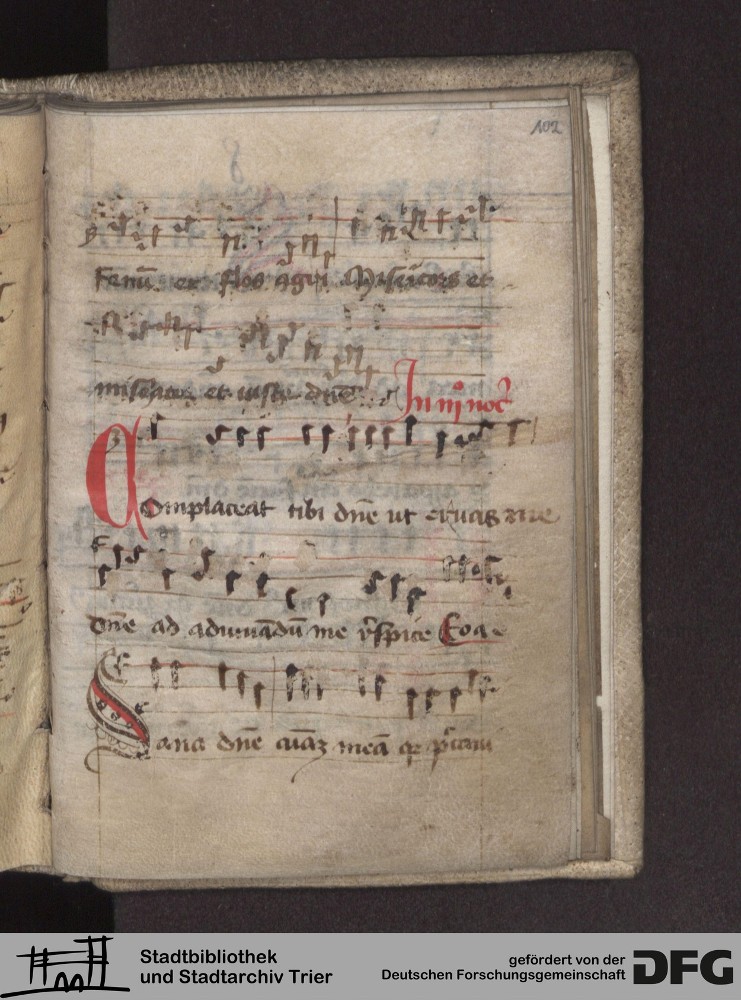 102
Fenū et flos agri Misericors et
miserator et iustꝰ dn̄s
In iii noct̄
Complaceat tibi dn̄e ut eruas me
dn̄e ad adiuuādū me respice Eoae
Sana dn̄e aīaʒ meā qꝛ peccaui
Stadtbibliothek
und Stadtarchiv Trier
gefördert von der
Deutschen Forschungsgemeinschaft
DFG